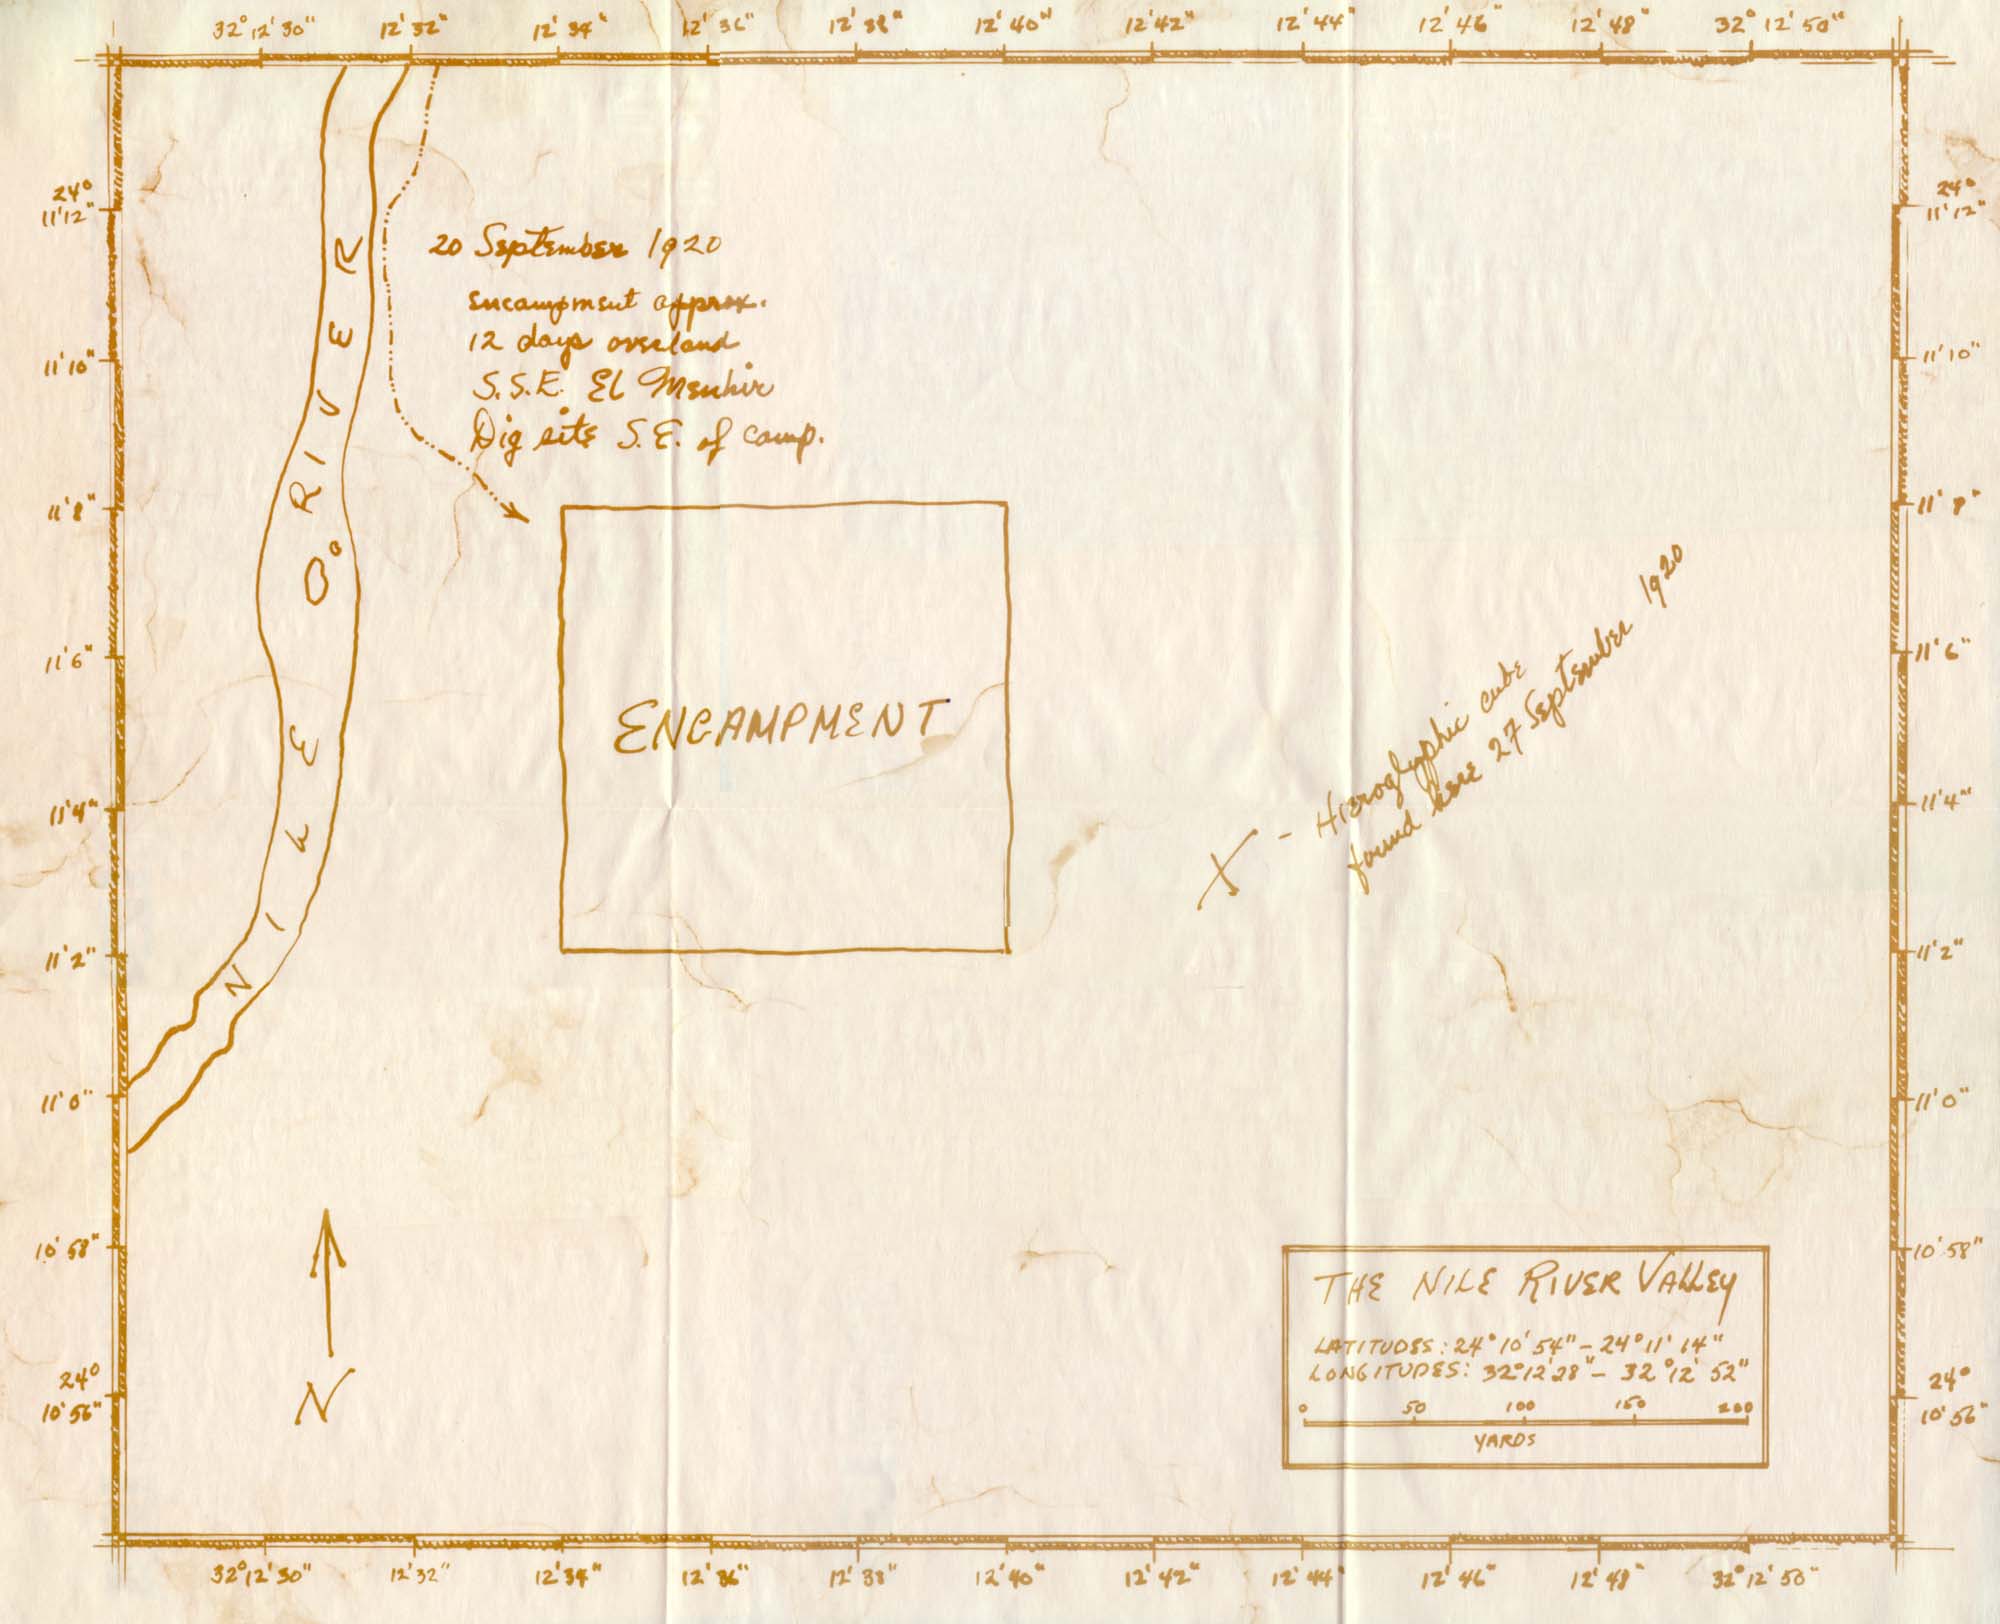 32° 12' 30" 12' 32" 12' 34" 12' 36" 12' 38" 12' 40" 12' 42" 12' 44" 12' 46" 12' 48" 32° 12' 50"
24°
11' 12"
11' 10"
11' 8"
11' 6"
11' 4"
11' 2"
11' 0"
10' 58"
24°
10' 56"
NILE RIVER
20 September 1920
encampment approx.
12 days overland
S.S.E. El Menhir
Dig site S.E. of camp.
ENCAMPMENT
X - Hieroglyphic cube
found here 27 September 1920
N
THE NILE RIVER VALLEY
LATITUDES: 24° 10' 54" - 24° 11' 14"
LONGITUDES: 32° 12' 28" - 32° 12' 52"
0 50 100 150 200
YARDS
24°
11' 12"
11' 10"
11' 8"
11' 6"
11' 4"
11' 2"
11' 0"
10' 58"
24°
10' 56"
32° 12' 30" 12' 32" 12' 34" 12' 36" 12' 38" 12' 40" 12' 42" 12' 44" 12' 46" 12' 48" 32° 12' 50"